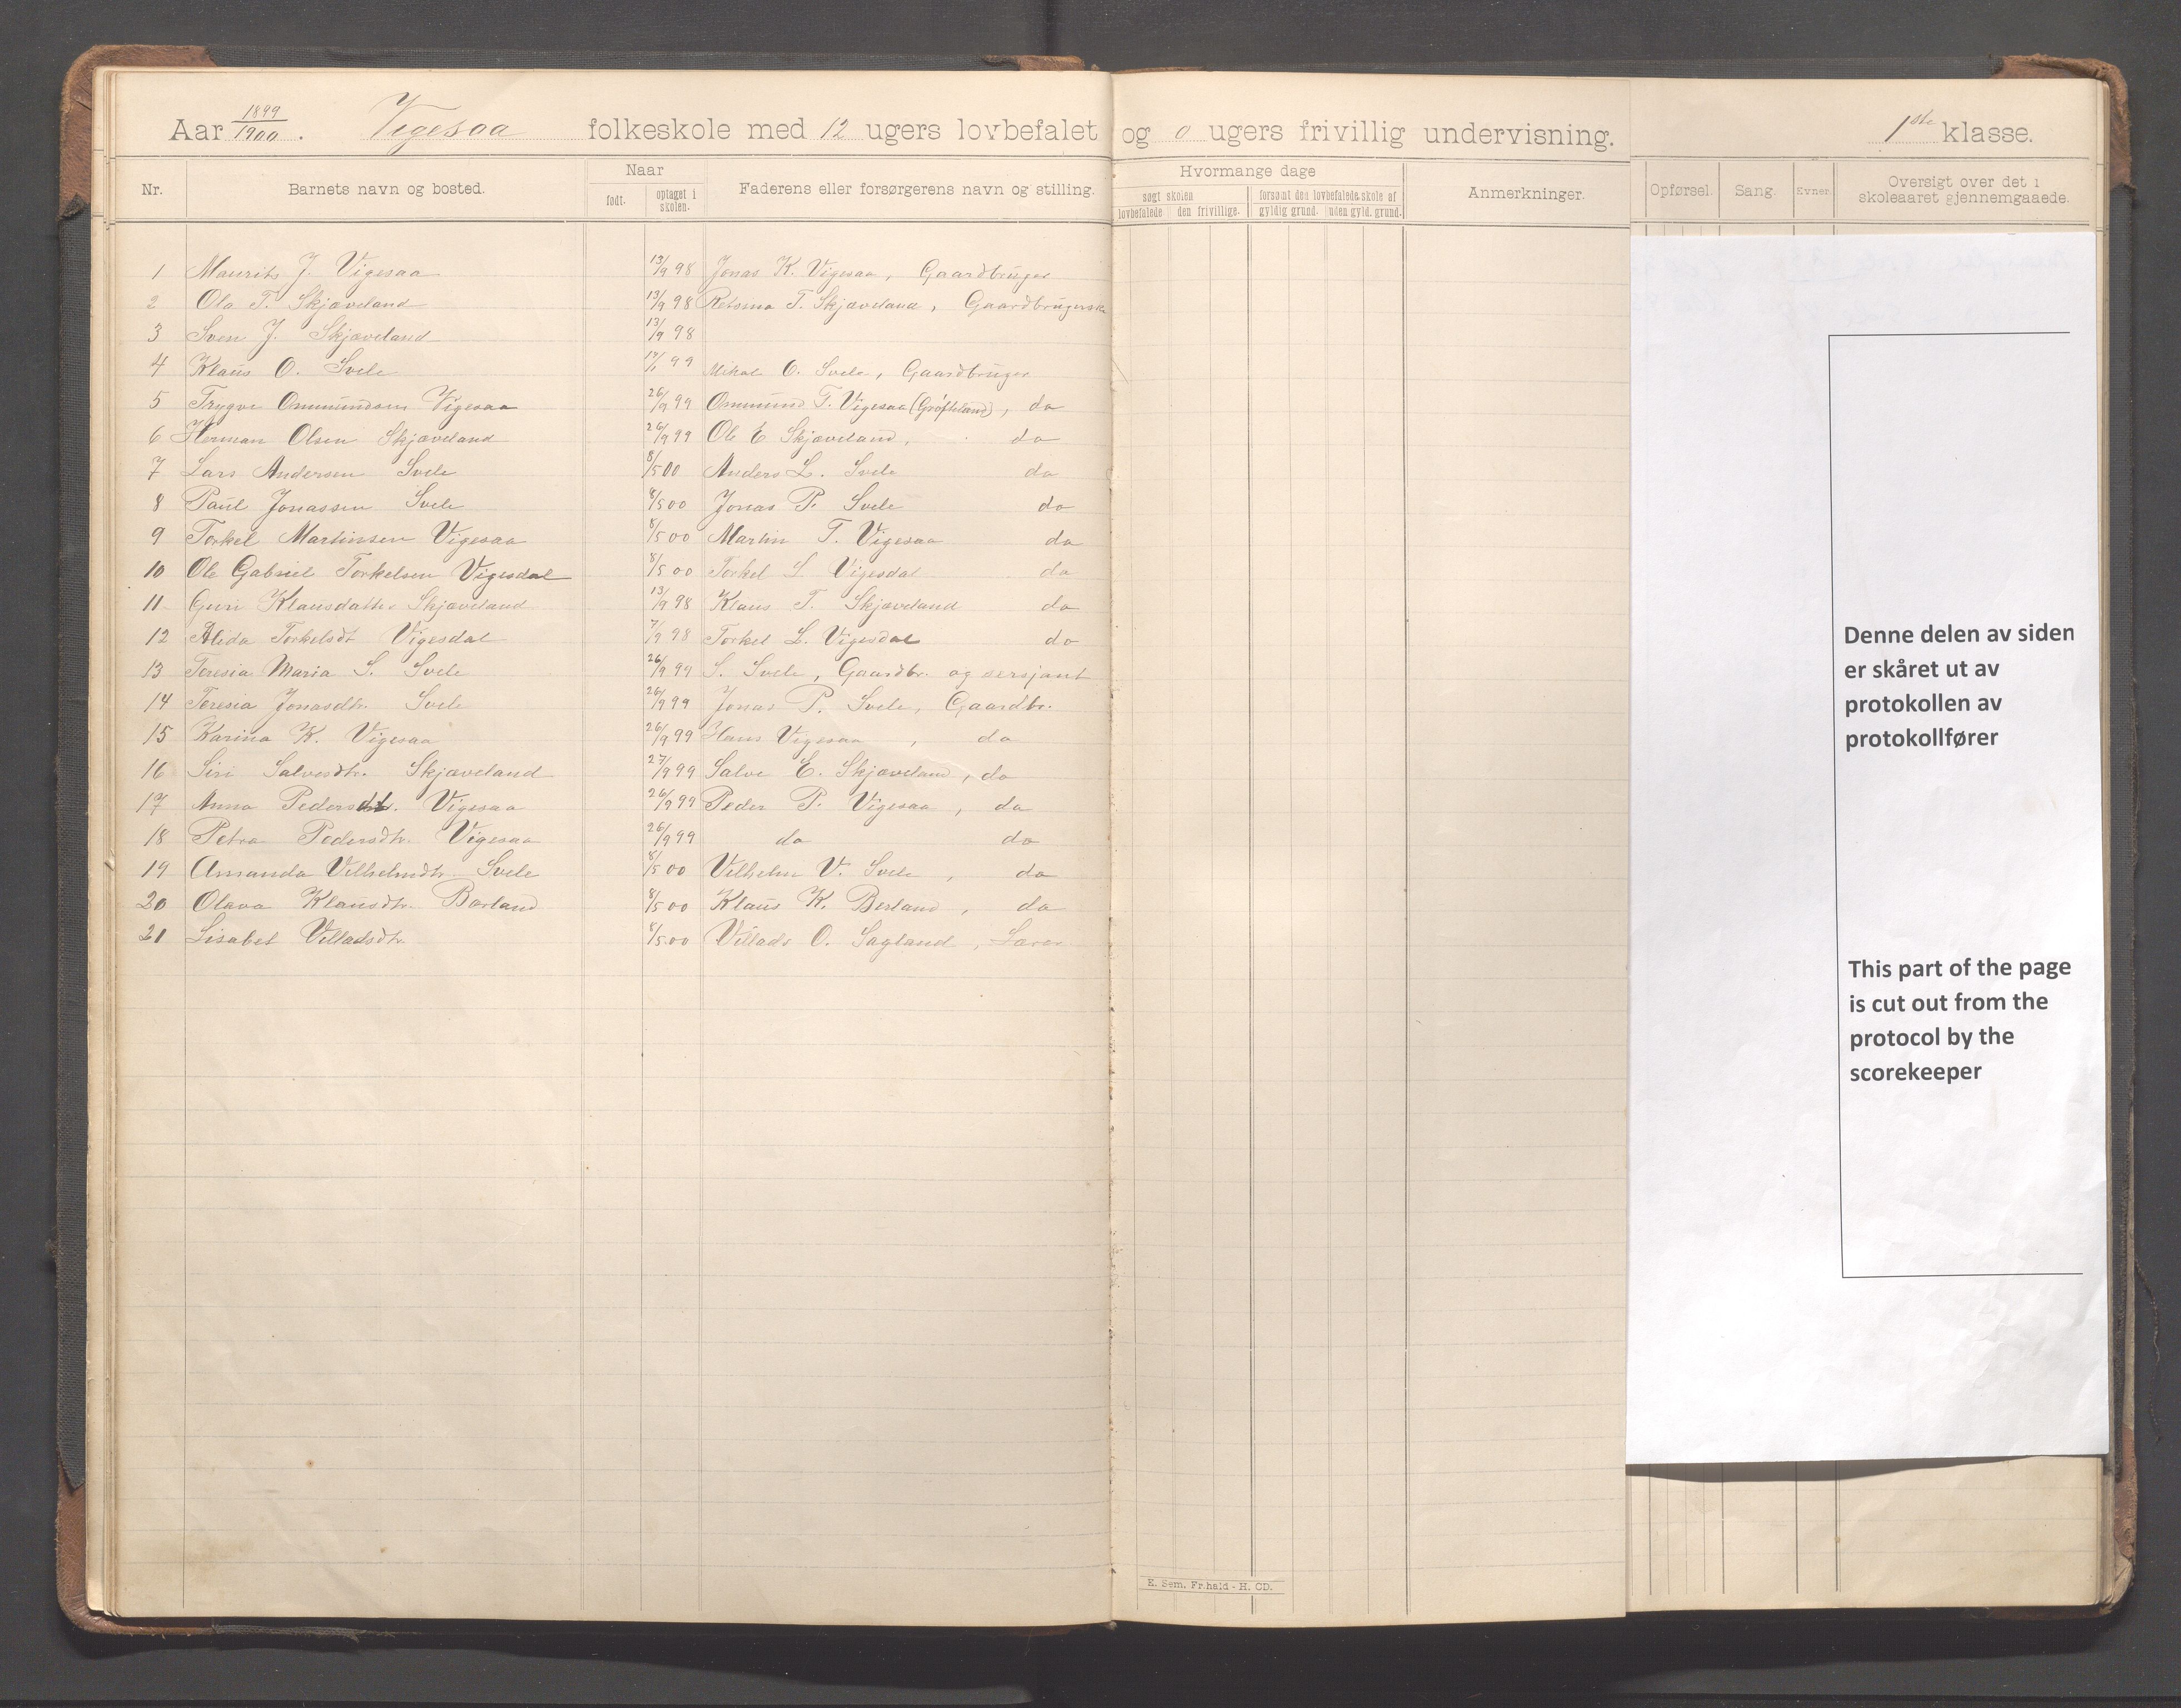 Aar 1899/1900. Vigesaa folkeskole med 12 ugers lovbefalet og 0 ugers frivillig undervisning. 1ste klasse.
Nr. Barnets navn og bosted. Naar født. optaget i skolen. Faderens eller forsørgerens navn og stilling. Hvormange dage søgt skolen lovbefalede den frivillige. forsømt den lovbefalede skole af gyldig grund. uden gyld. grund. Anmerkninger. Opførsel. Sang. Evner. Oversigt over det i skoleaaret gjennemgaaede.
1 Maurits J. Vigesaa 13/9 98 Jonas K. Vigesaa, Gaardbruger
2 Ola T. Skjæveland 13/9 98 T. Skjæveland, Gaardbrugerske
3 Sven J. Skjæveland 13/9 98
4 Klaus O. Svele 99 Mikal O. Svele, Gaardbruger
5 Trygve Ommundsen Vigesaa 26/9 99 Ommund T. Vigesaa (Grøfteland), do
6 Herman Olsen Skjæveland 26/9 99 Ole E Skjæveland, do
7 Lars Andersen Svele 8/5 00 Anders L. Svele do
8 Paul Jonassen Svele 8/5 00 Jonas P. Svele do
9 Torkel Martinsen Vigesaa 8/5 00 Martin T. Vigesaa do
10 Ole Gabriel Torkelsen Vigesdal 8/5 00 Torkel L Vigesdal do
11 Guri Klausdatter Skjæveland 13/9 98 Klaus T. Skjæveland do
12 Alida Torkelsdt Vigesdal 7/9 98 Torkel L. Vigesdal do
13 Teresia Maria S. Svele 26/9 99 S. Svele, Gaardbr. og sersjant
14 Teresia Jonasdtr. Svele 26/9 99 Jonas P. Svele, Gaardbr.
15 Karina K. Vigesaa 26/9 99 Hans Vigesaa, do
16 Siri Salvesdtr. Skjæveland 27/9 99 Salve E. Skjæveland, do
17 Anna Pedersdt. Vigesaa 26/9 99 Peder P. Vigesaa, do
18 Petra Pedersdtr. Vigesaa 26/9 99 do do
19 Amanda Vilhelmdtr. Svele 8/5 00 Vilhelm V. Svele, do
20 Olava Klausdtr. Børland 8/5 00 Klaus K. Berland, do
21 Lisabet Villadsdtr 8/5 00 Villads O. Sagland, Lærer
E. Sem. Fr.hald - H. CD.
Denne delen av siden
er skåret ut av
protokollen av
protokollfører
This part of the page
is cut out from the
protocol by the
scorekeeper